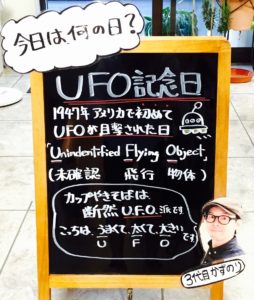 今日は、何の日？
UFO記念日
1947年アメリカで初めて
UFOが目撃された日
「Unindentified Flying Object」
(未確認 飛行 物体)
カップやきそばは
断然 U.F.O.派です
こころは、うまくて、太くて、大きい
です
U F O
3代目かずのり